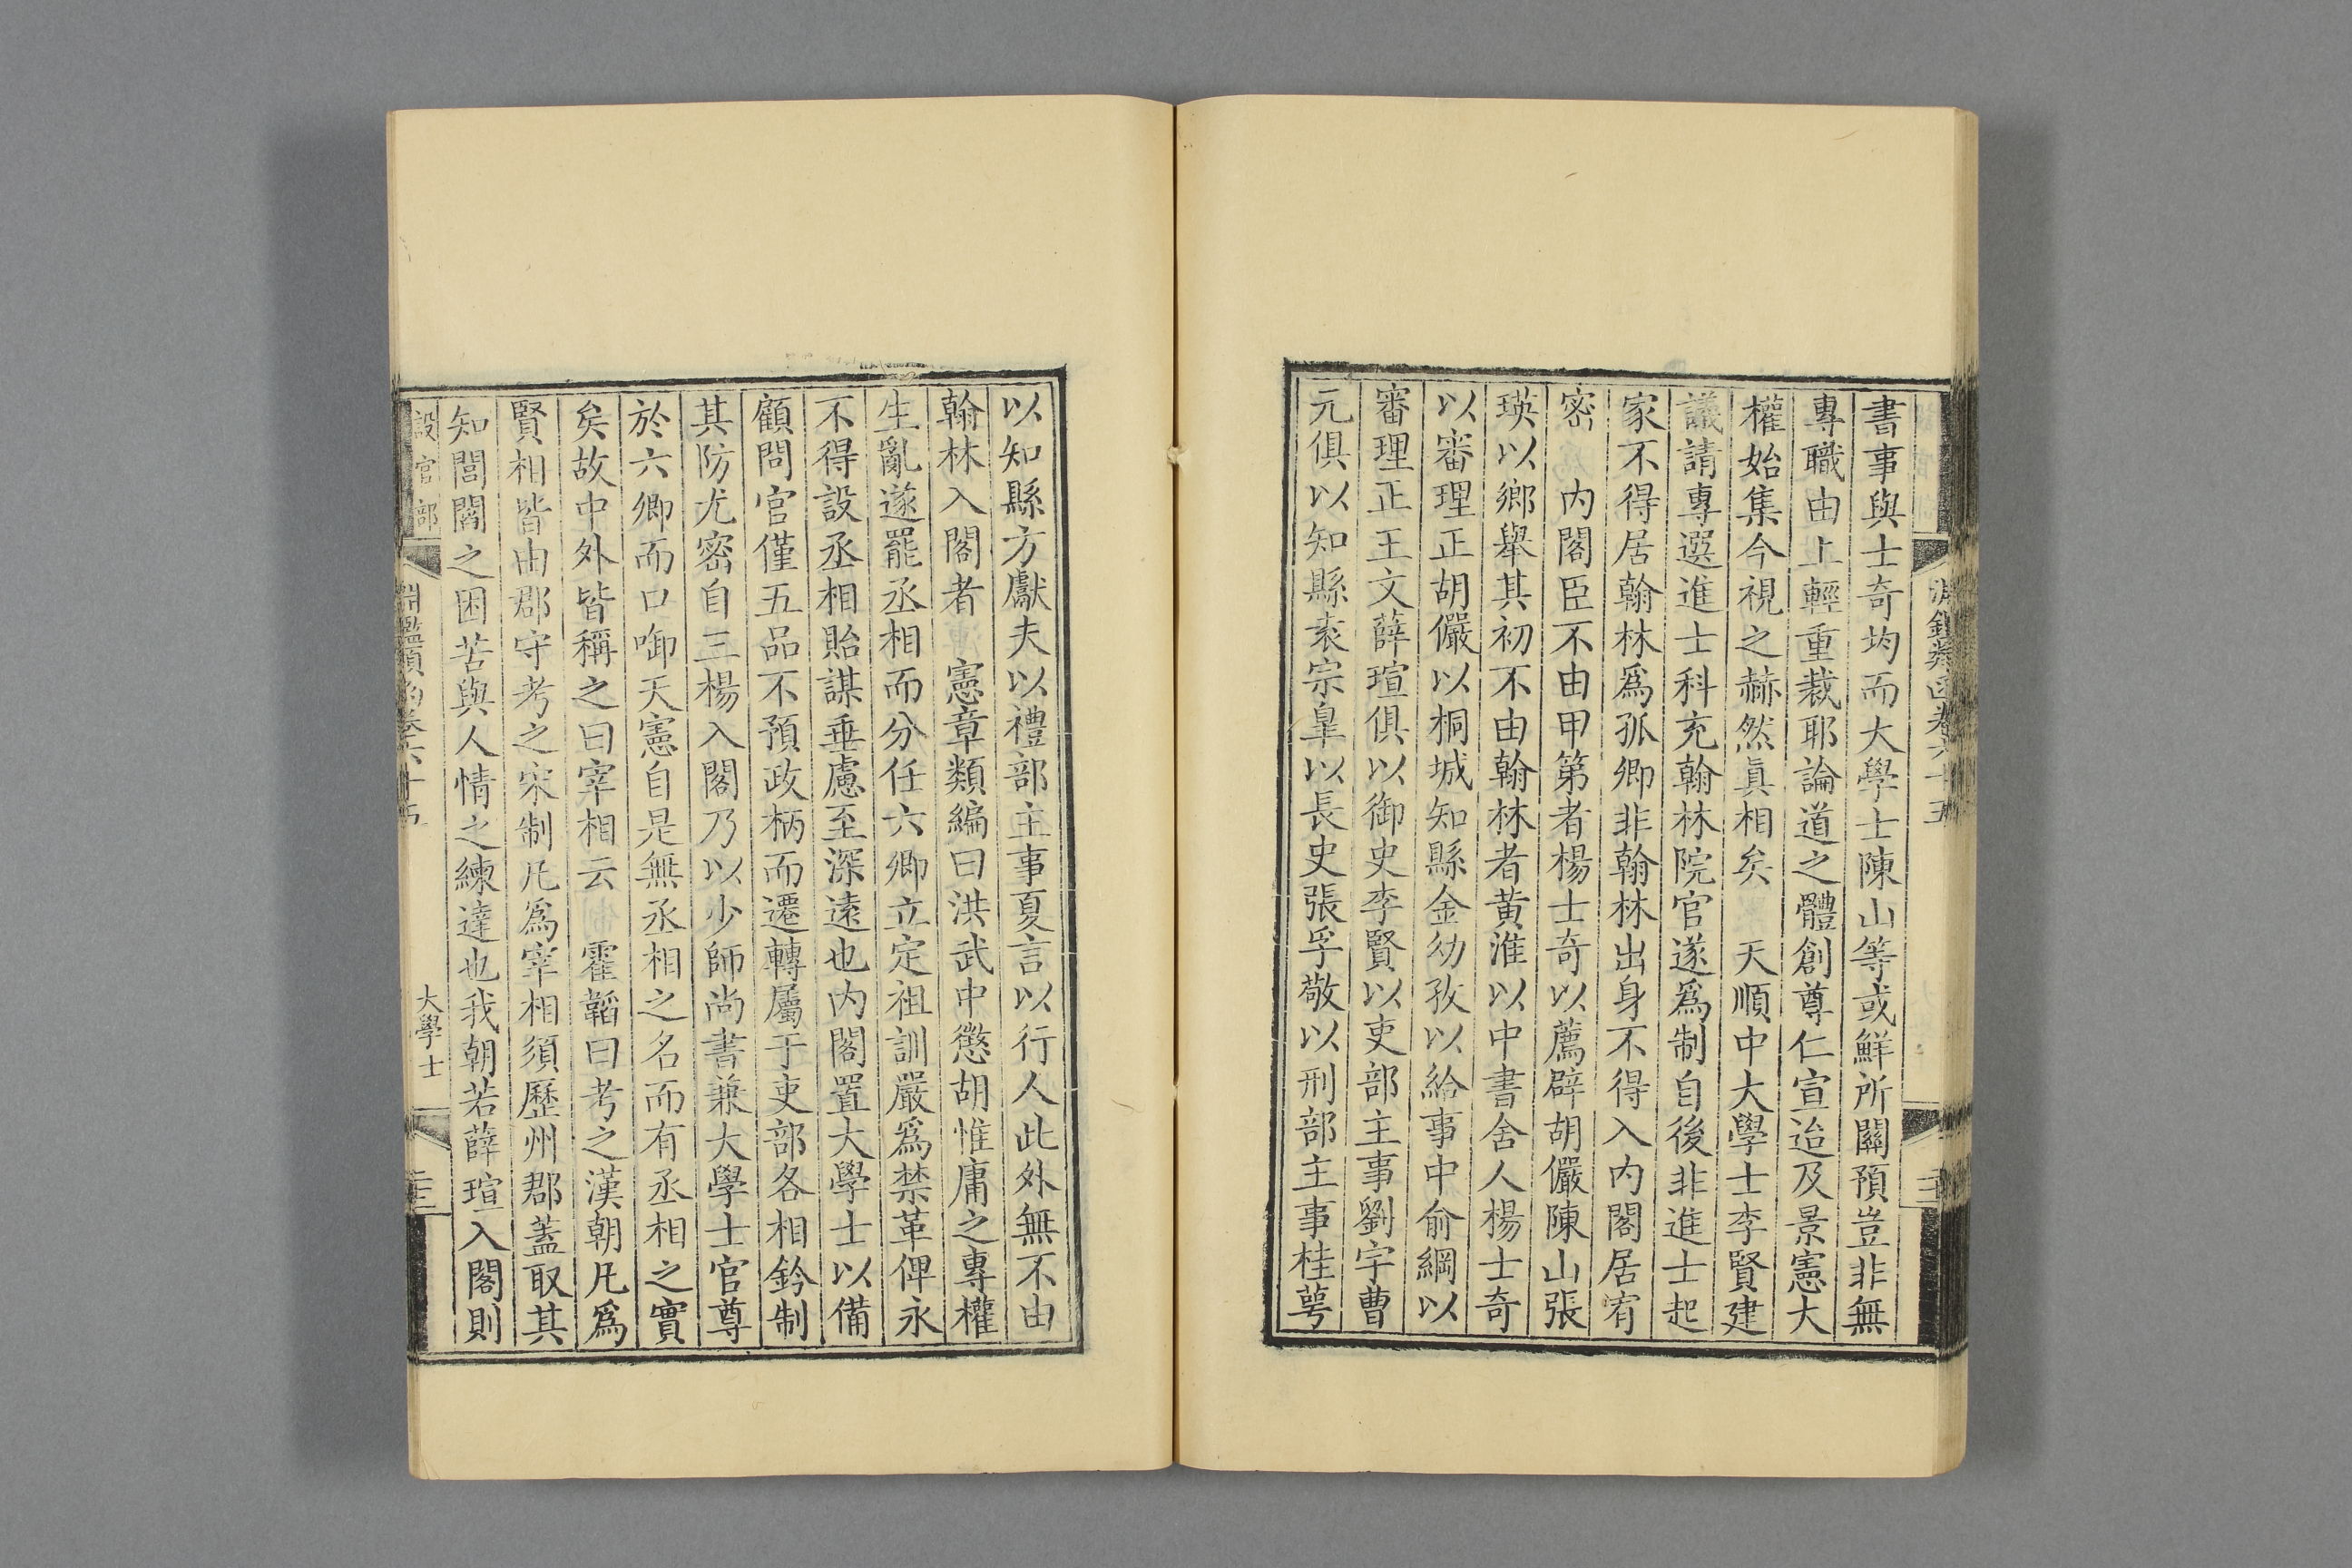 書事與士奇均而大學士陳山等或鮮所關預豈非無
專職由上輕重裁耶論道之體創尊仁宣迨及景憲大
權始集今視之赫然真相矣　天順中大學士李賢建
議請專選進士科充翰林院官遂爲制自後非進士起
家不得居翰林爲孤卿非翰林出身不得入内閣居宥
密　内閣臣不由甲第者楊士奇以薦辟胡儼陳山張
瑛以鄉舉其初不由翰林者黄淮以中書舍人楊士奇
以審理正胡儼以桐城知縣金幼孜以給事中俞綱以
審理正王文薛瑄俱以御史李賢以吏部主事劉宇曹
元俱以知縣袁宗皐以長史張孚敬以刑部主事桂萼
以知縣方獻夫以禮部主事夏言以行人此外無不由
翰林入閣者　憲章類編曰洪武中懲胡惟庸之專權
生亂遂罷丞相而分任六卿立定祖訓嚴爲禁革俾永
不得設丞相貽謀垂慮至深遠也内閣置大學士以備
顧問官僅五品不預政柄而遷轉屬于吏部各相鈐制
其防尤密自三楊入閣乃以少師尚書兼大學士官尊
於六卿而口啣天憲自是無丞相之名而有丞相之實
矣故中外皆稱之曰宰相云　霍韜曰考之漢朝凡爲
賢相皆由郡守考之宋制凡爲宰相須歷州郡蓋取其
知閭閻之困苦與人情之練達也我朝若薛瑄入閣則
設官部
淵鑑類函卷六十五
大學士